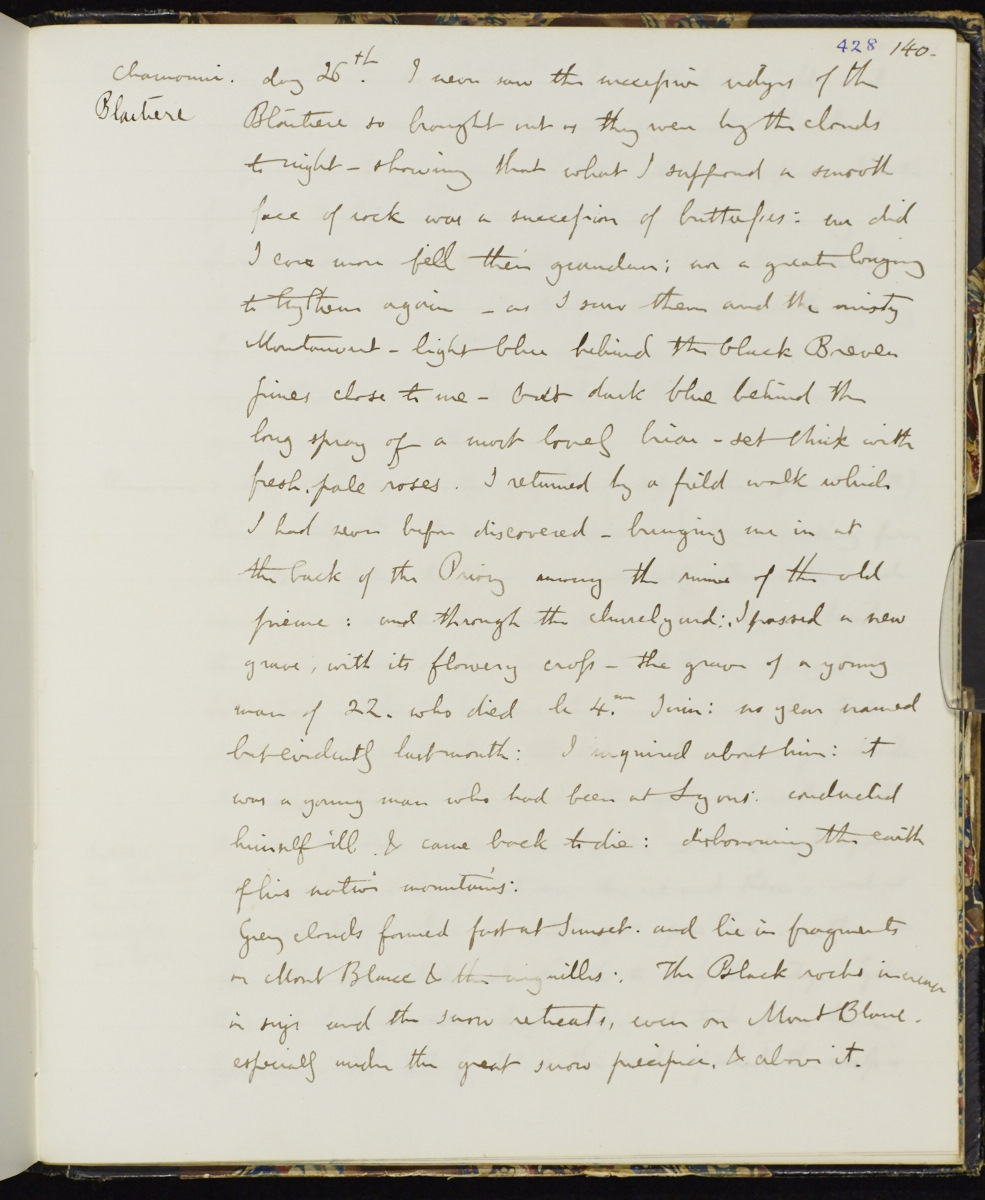 428 140.
Chamouni. day 26th. I never saw the successive ridges of the
Blaitiere
Blaitiere so brought out as they were by the clouds
to night - showing that what I supposed a smooth
face of rock was a succession of buttresses: nor did
I ever more feel their grandeur; nor a greater longing
to try them again - as I saw them and the misty
Montanvert - light blue behind the black Breven
pines close to me - dark blue behind the
long spray of a most lovely briar - set thick with
fresh, pale roses. I returned by a field walk which
I had never before discovered - bringing me in at
the back of the Priory among the ruins of the old
prieure: and through the churchyard: I passed a new
grave, with its flowery cross - the grave of a young
man of 22. who died le 4.me Juin: no year named
but evidently last month: I inquired about him: it
was a young man who had been at Lyons. conducted
himself ill. & came back to die: dishonouring the earth
of his native mountains:
Grey clouds formed fast at Sunset. and lie in fragments
on Mont Blanc & the aiguilles: The Black rocks increase
in size and the snow retreats, even on Mont Blanc.
especially under the great snow precipice. & above it.